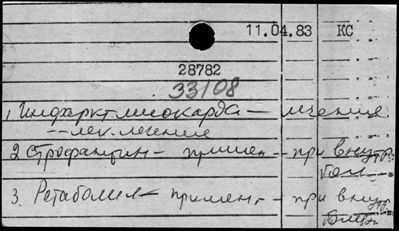 11.04.83 КС
28782
33/08
1 Инфаркт миокарда — лечение
-- лек. лечение
2 Строфантин — примен. -- при внутр.
бол.
3. Ретаболил — примен. — при внутр.
болезн.